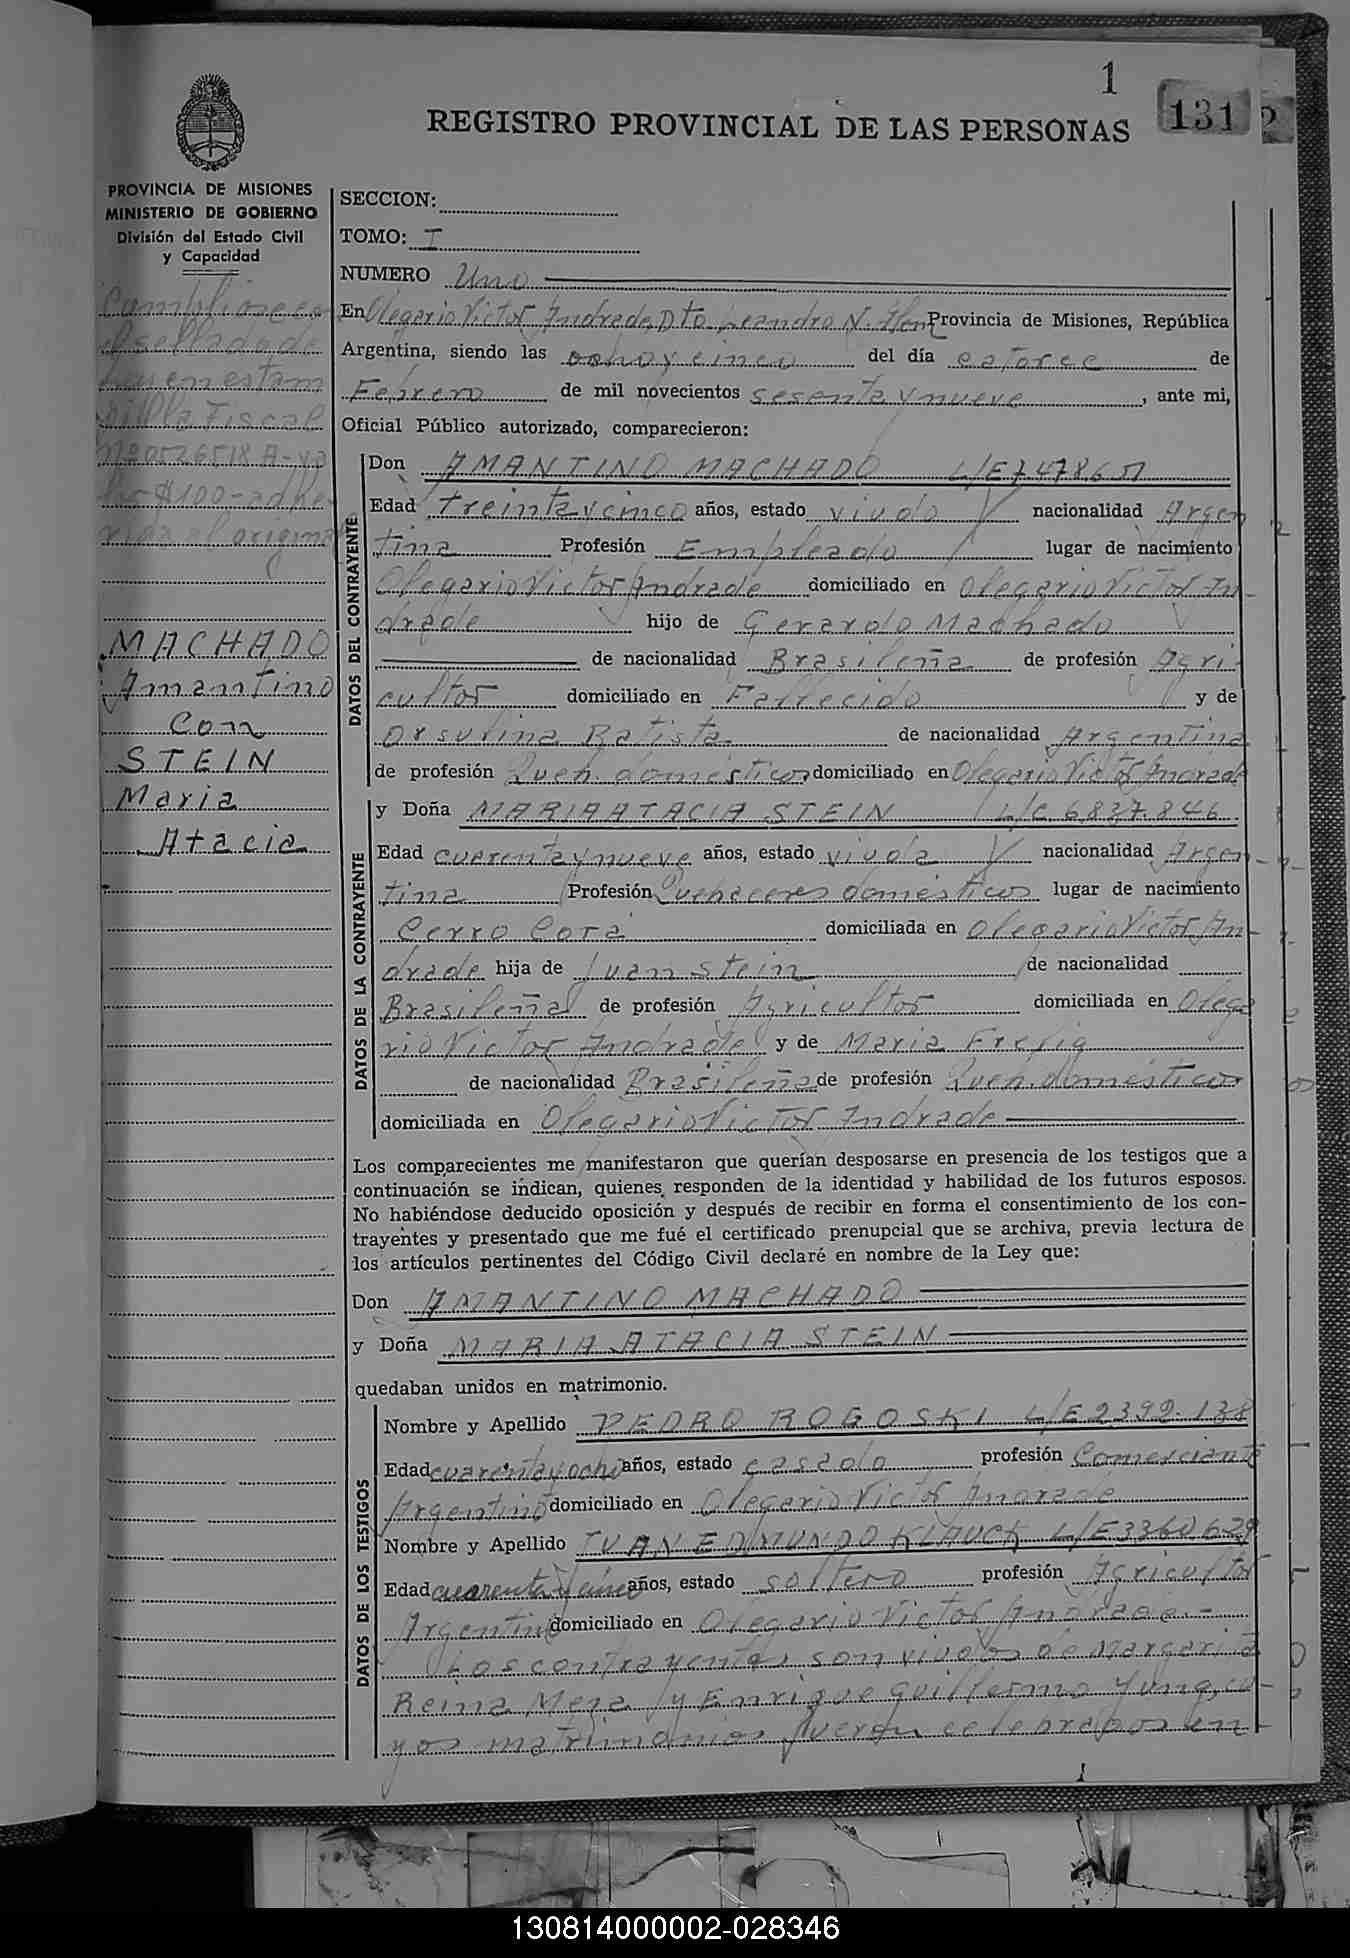 1
131
2
REGISTRO PROVINCIAL DE LAS PERSONAS
PROVINCIA DE MISIONES
MINISTERIO DE GOBIERNO
División del Estado Civil
y Capacidad
Cumplióse con
el sellado de
ley en estam
pilla Fiscal
Nº 20526518 A-y
$100- adhe
rida al origina
MACHADO
Amantino
Con
STEIN
Maria
Atacia
SECCION:
TOMO: I
NUMERO Uno
En Olegario Victor Andrade, Dto. Leandro N. Alem Provincia de Misiones, República
Argentina, siendo las ocho y cinco del día catorce de
Febrero de mil novecientos sesenta y nueve, ante mi,
Oficial Público autorizado, comparecieron:
DATOS DEL CONTRAYENTE
Don AMANTINO MACHADO L/E 7.478.651
Edad treinta y cinco años, estado viudo nacionalidad Argen
tina Profesión Empleado lugar de nacimiento
Olegario Victor Andrade domiciliado en Olegario Victor An-
drade hijo de Gerardo Machado
de nacionalidad Brasileña de profesión Agri-
cultor domiciliado en Fallecido y de
Orsulina Batista de nacionalidad Argentina
de profesión Queh. domésticos domiciliado en Olegario Victor Andrade
DATOS DE LA CONTRAYENTE
y Doña MARIA ATACIA STEIN L/C 6.837.846
Edad cuarenta y nueve años, estado viuda nacionalidad Argen-
tina Profesión Quehaceres domésticos lugar de nacimiento
Cerro Corá domiciliada en Olegario Victor An-
drade hija de Juan Stein de nacionalidad
Brasileña de profesión Agricultor domiciliada en Olega
rio Victor Andrade y de Maria
de nacionalidad Brasileña de profesión Queh. domésticos
domiciliada en Olegario Victor Andrade
Los comparecientes me manifestaron que querían desposarse en presencia de los testigos que a
continuación se indican, quienes responden de la identidad y habilidad de los futuros esposos.
No habiéndose deducido oposición y después de recibir en forma el consentimiento de los con-
trayentes y presentado que me fué el certificado prenupcial que se archiva, previa lectura de
los artículos pertinentes del Código Civil declaré en nombre de la Ley que:
Don AMANTINO MACHADO
y Doña MARIA ATACIA STEIN
quedaban unidos en matrimonio.
DATOS DE LOS TESTIGOS
Nombre y Apellido PEDRO ROGOSKI L/E 2392.138
Edad cuarenta y ocho años, estado casado profesión Comerciante
Argentino domiciliado en Olegario Victor Andrade
Nombre y Apellido IVAN EDMUNDO KLAUCK L/E 3360629
Edad cuarenta y cinco años, estado soltero profesión Agricultor
Argentino domiciliado en Olegario Victor Andrade.-
Los contrayentes son viudos de Margarita
Reina Meza y Enrique Guillermo Yung, cu-
yos matrimonios fueron celebrados en
130814000002-028346